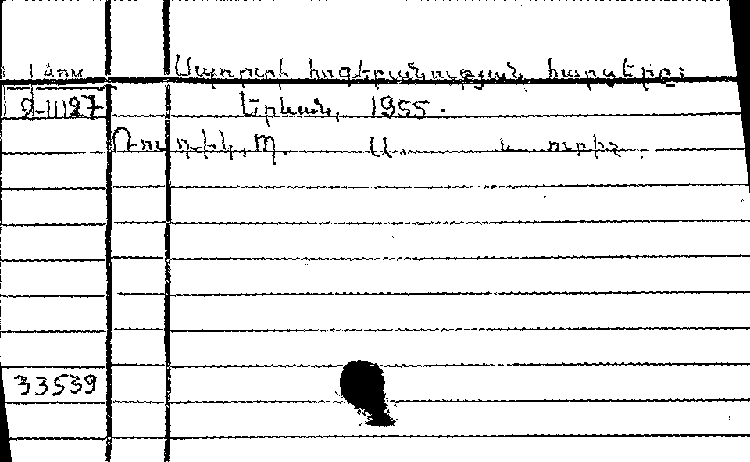 Սպորտի հոգեբանության հարցերը:
Երևան, 1955.
Ռուդիկ, Պ. Ա. և ուրիշ.
33539